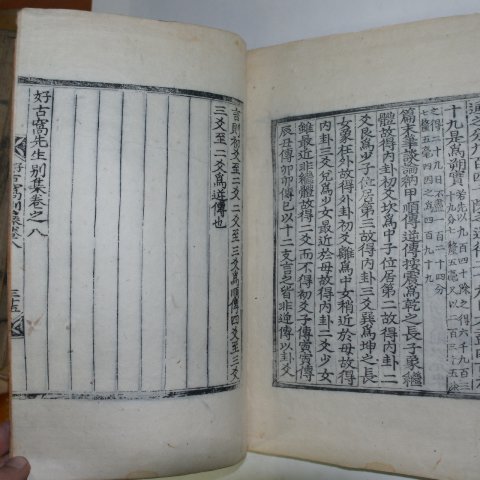 十九是爲朔實
篇末筆談論納甲順傳逆傳按震爲乾之長子象繼
體故得內卦初爻坎爲中子位居第二故得內卦二
爻艮爲少子位居第三故得內卦三爻巽爲坤之長
女象在外故得外卦初爻離爲中女稍近於母故得
內卦二爻兌爲少女最近於母故得內卦三爻少女
雖最近非繼體故得二而不得初子傳寅寅傳
辰丑傳卯卯傳巳以十二支言之皆非逆傳以卦爻
言則初爻至二爻二爻至三爻爲順傳四爻至三爻
三爻至二爻爲逆傳也
好古窩先生別集卷之八
好古窩別集卷八 三五